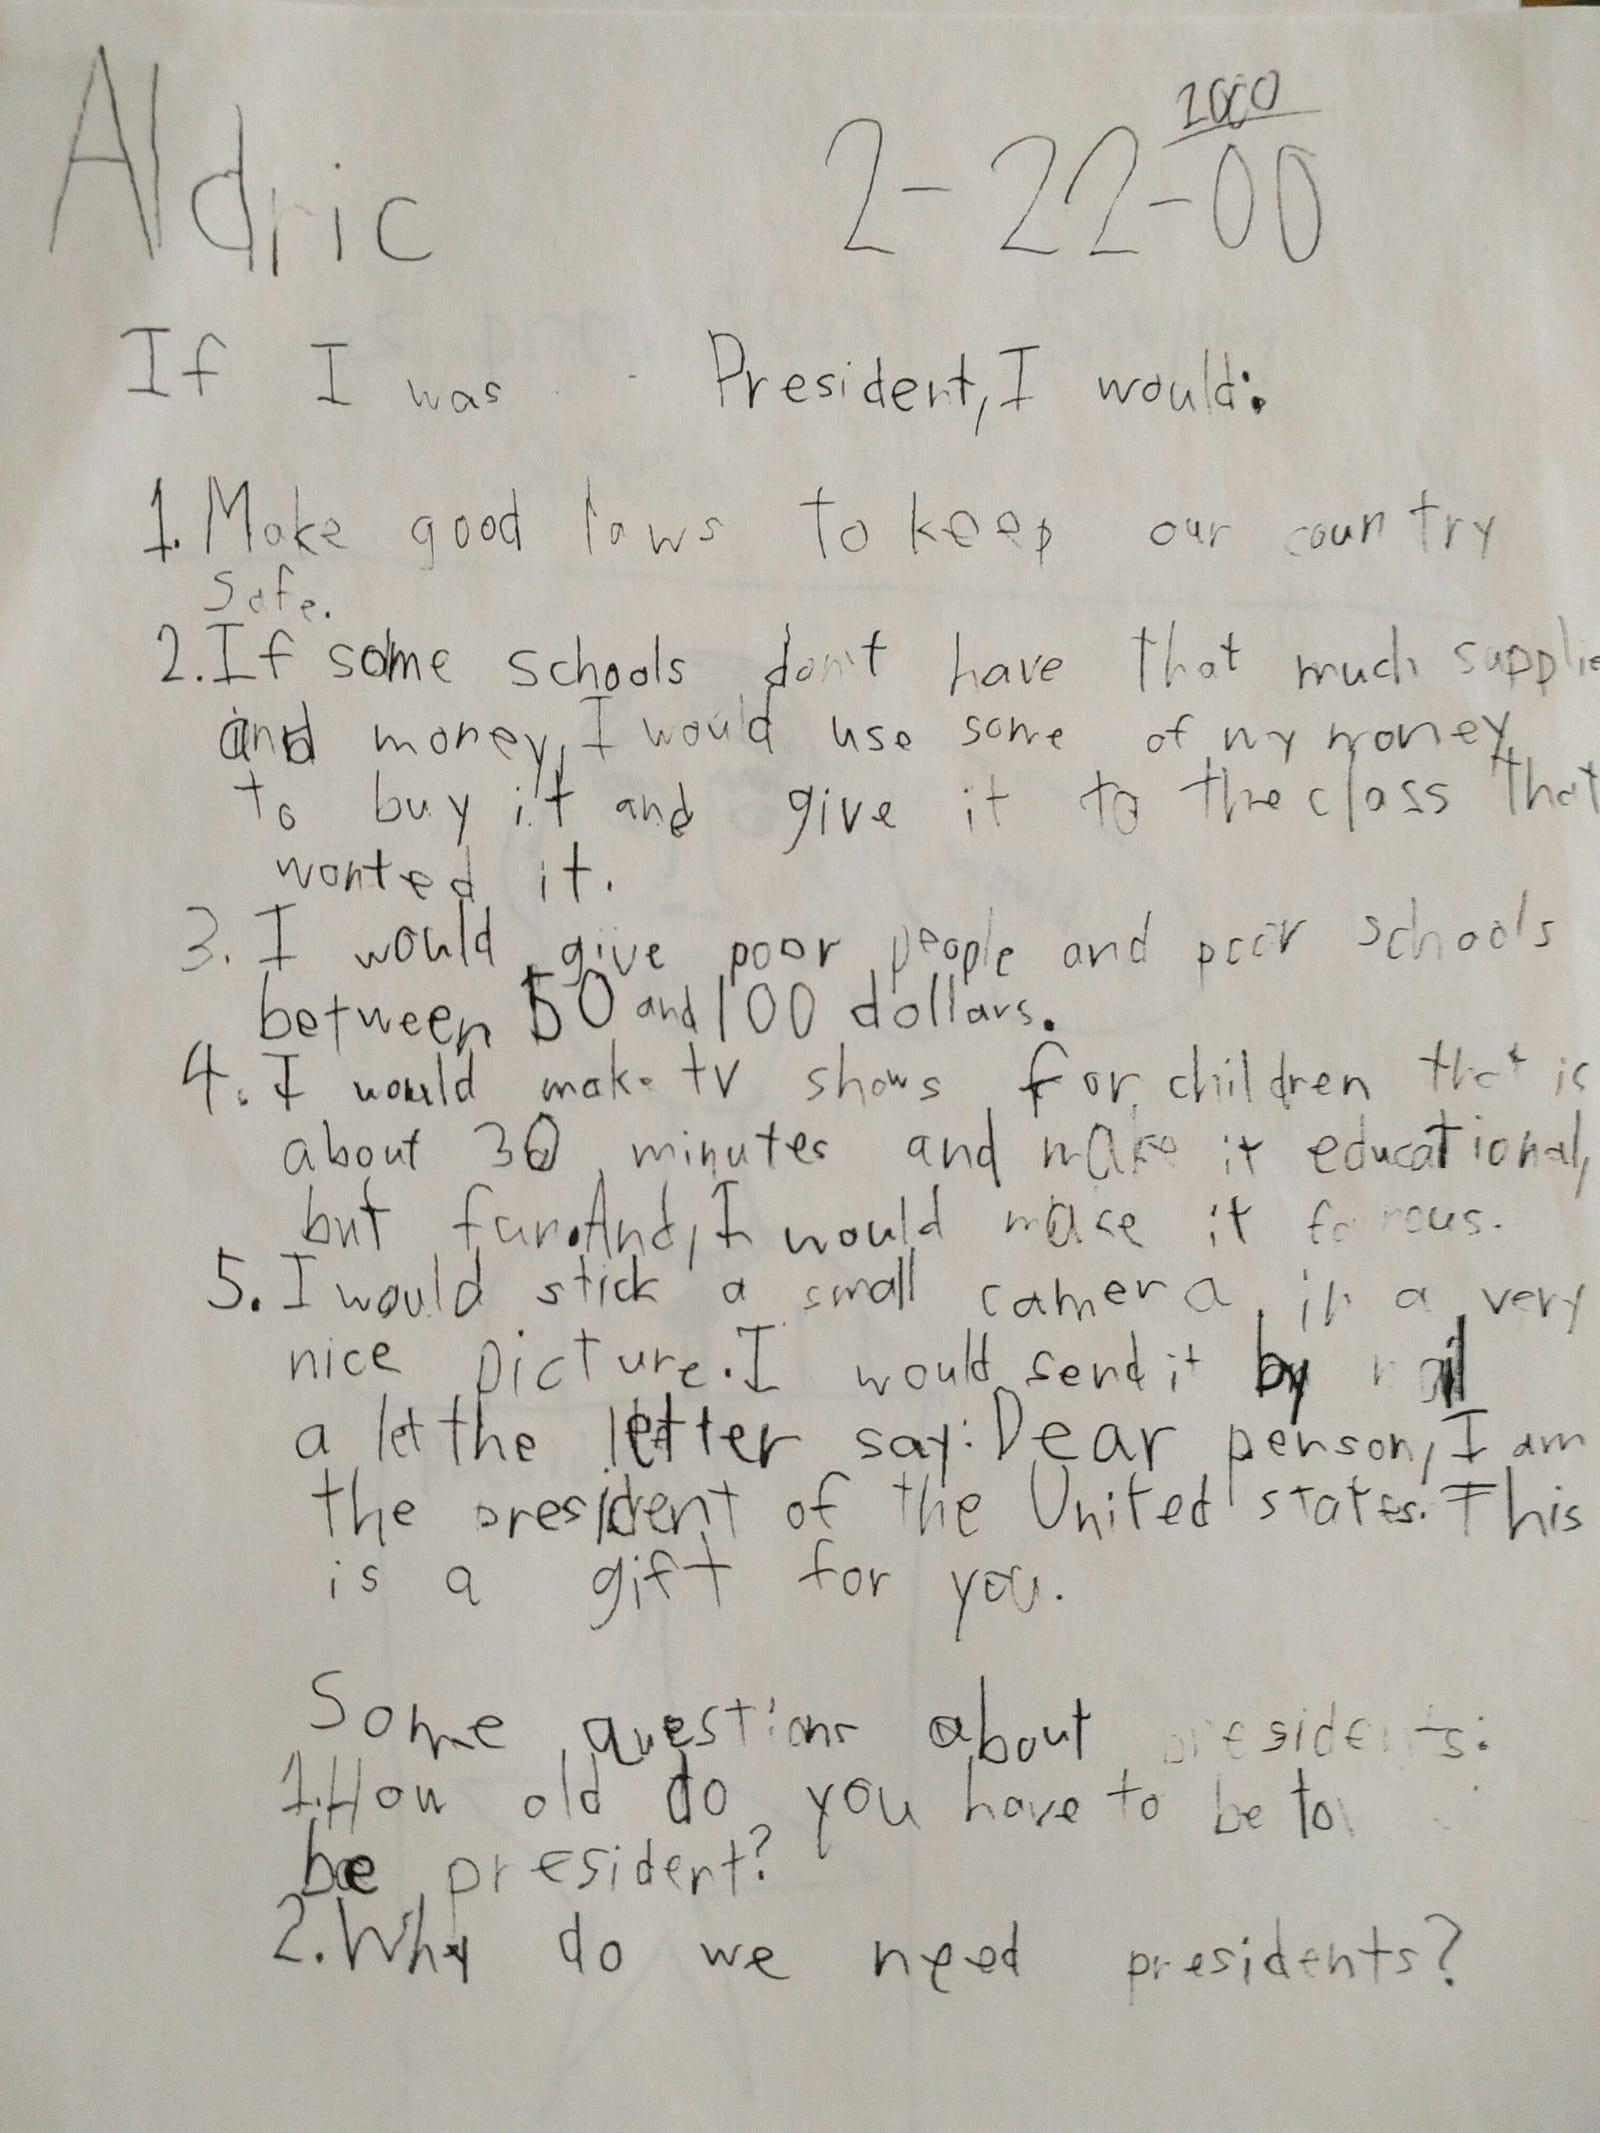 Aldric 2-22-00 2000
If I was President, I would:
1. Make good laws to keep our country
safe.
2. If some schools don't have that much supplie
and money, I would use some of my money
to buy it and give it to the class that
wanted it.
3. I would give poor people and poor schools
between 50 and 100 dollars.
4. I would make tv shows for children that is
about 30 minutes and make it educational,
but fun. And, I would make it famous.
5. I would stick a small camera in a very
nice picture. I would send it by mail
a let the letter say: Dear person, I am
the president of the United states. This
is a gift for you.
Some questions about presidents:
1. How old do you have to be to
be president?
2. Why do we need presidents?